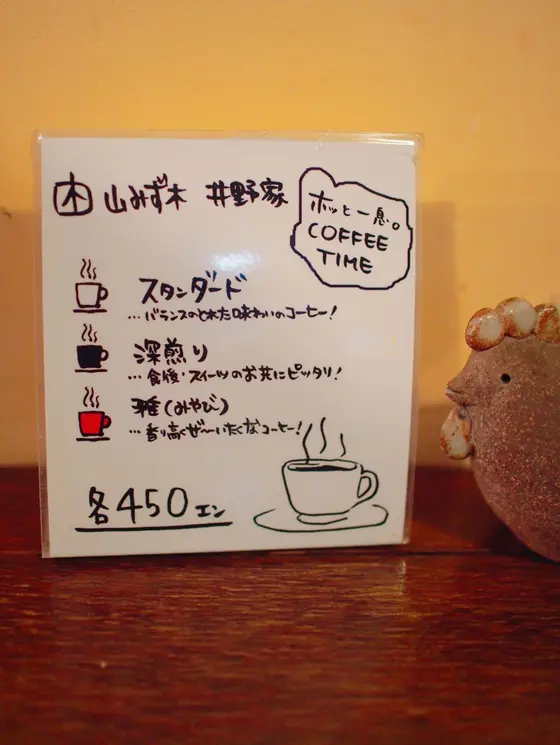 山みず木 井野家
ホッと一息。
COFFEE
TIME
スタンダード
…バランスのとれた味わいのコーヒー!
深煎り
…食後・スイーツのお共にピッタリ!
雅(みやび)
…香り高くぜ〜いたくなコーヒー!
各450エン